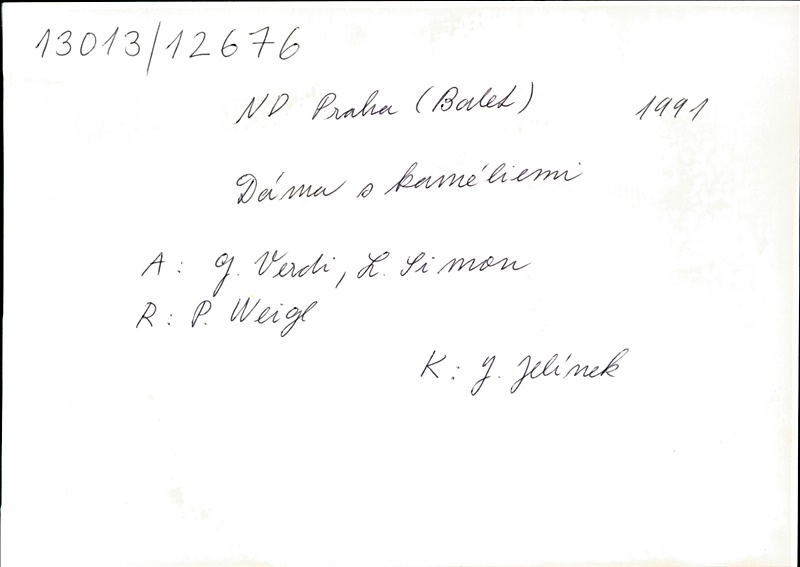 13013/12676
ND Praha (Balet) 1991
Dáma s kaméliemi
A: G. Verdi, L. Simon
R: P. Weigl
K: J. Jelínek